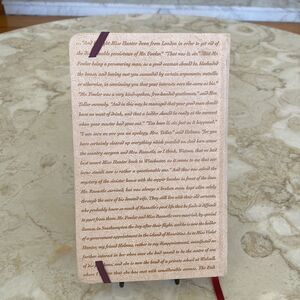 ... "And brought Miss Hunter down from London in order to get rid of
the disagreeable persistence of Mr. Fowler." "That was it, sir." "But Mr.
Fowler being a persevering man, as a good seaman should be, blockaded
the house, and having met you succeeded by certain arguments, metallic
or otherwise, in convincing you that your interests were the same as his."
"Mr. Fowler was a very kind-spoken, free-handed gentleman," said Mrs.
Toller serenely. "And in this way he managed that your good man should
have no want of drink, and that a ladder should be ready at the moment
when your master had gone out." "You have it, sir, just as it happened."
"I am sure we owe you an apology, Mrs. Toller," said Holmes, "for you
have certainly cleared up everything which puzzled us. And here comes
the country surgeon and Mrs. Rucastle, so I think, Watson, that we had
best escort Miss Hunter back to Winchester, as it seems to me that our
locus standi now is rather a questionable one." And thus was solved the
mystery of the sinister house with the copper beeches in front of the door.
Mr. Rucastle survived, but was always a broken man, kept alive solely
through the care of his devoted wife. They still live with their old servants,
who probably know so much of Rucastle's past life that he finds it difficult
to part from them. Mr. Fowler and Miss Rucastle were married, by special
license, in Southampton the day after their flight, and he is now the holder
of a government appointment in the island of Mauritius. As to Miss Violet
Hunter, my friend Holmes, rather to my disappointment, manifested no
further interest in her when once she had ceased to be the centre of one
of his problems, and she is now the head of a private school at Walsall,
where I believe that she has met with considerable success. The End.